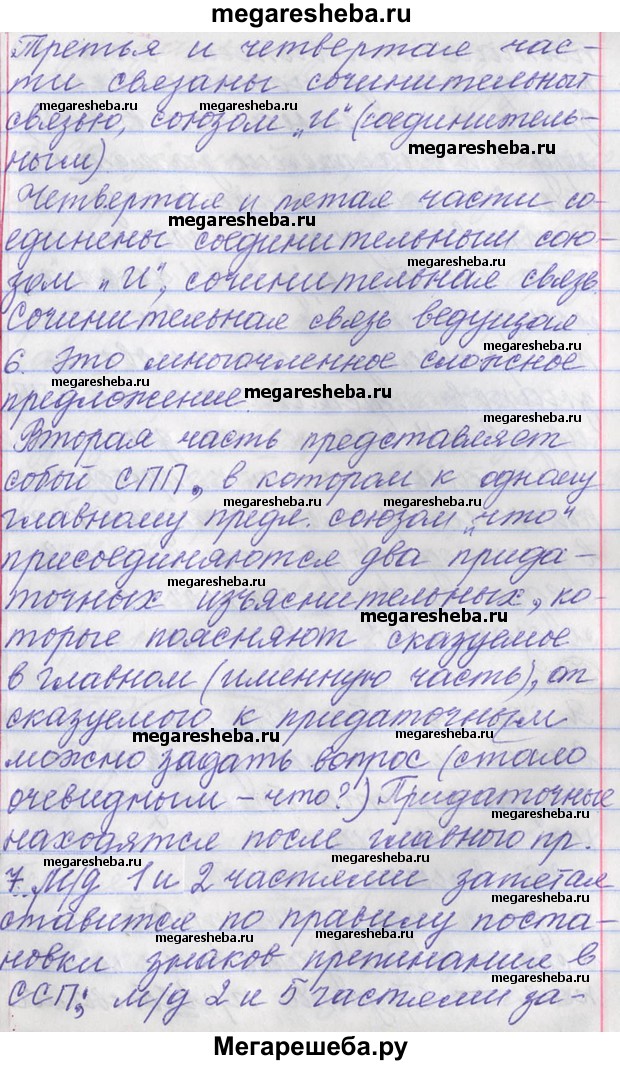 megaresheba.ru
Третья и четвертая час-
ти связаны сочинительной
megaresheba.ru megaresheba.ru
связью, союзом „И“ (соединитель-
megaresheba.ru
ным)
Четвертая и пятая части со-
megaresheba.ru
единены соединительным сою-
megaresheba.ru
зом „И“, сочинительная связь.
Сочинительная связь ведущая
6. Это многочленное сложное
megaresheba.ru megaresheba.ru
предложение.
megaresheba.ru
Вторая часть представляет
собой СПП, в котором к одному
megaresheba.ru megaresheba.ru
главному предл. союзом „что“
присоединяются два прида-
megaresheba.ru
точных изъяснительных, ко-
megaresheba.ru
торые поясняют сказуемое
в главном (именную часть), от
сказуемого к придаточным
megaresheba.ru
можно задать вопрос (стало
megaresheba.ru
очевидным – что?) Придаточные
находятся после главного пр.
megaresheba.ru megaresheba.ru
7. М/д 1 и 2 частями запятая
megaresheba.ru
ставится по правилу поста-
megaresheba.ru megaresheba.ru
новки знаков препинания в
megaresheba.ru
ССП; м/д 2 и 5 частями за-
megaresheba.ru
Мегарешеба.ру